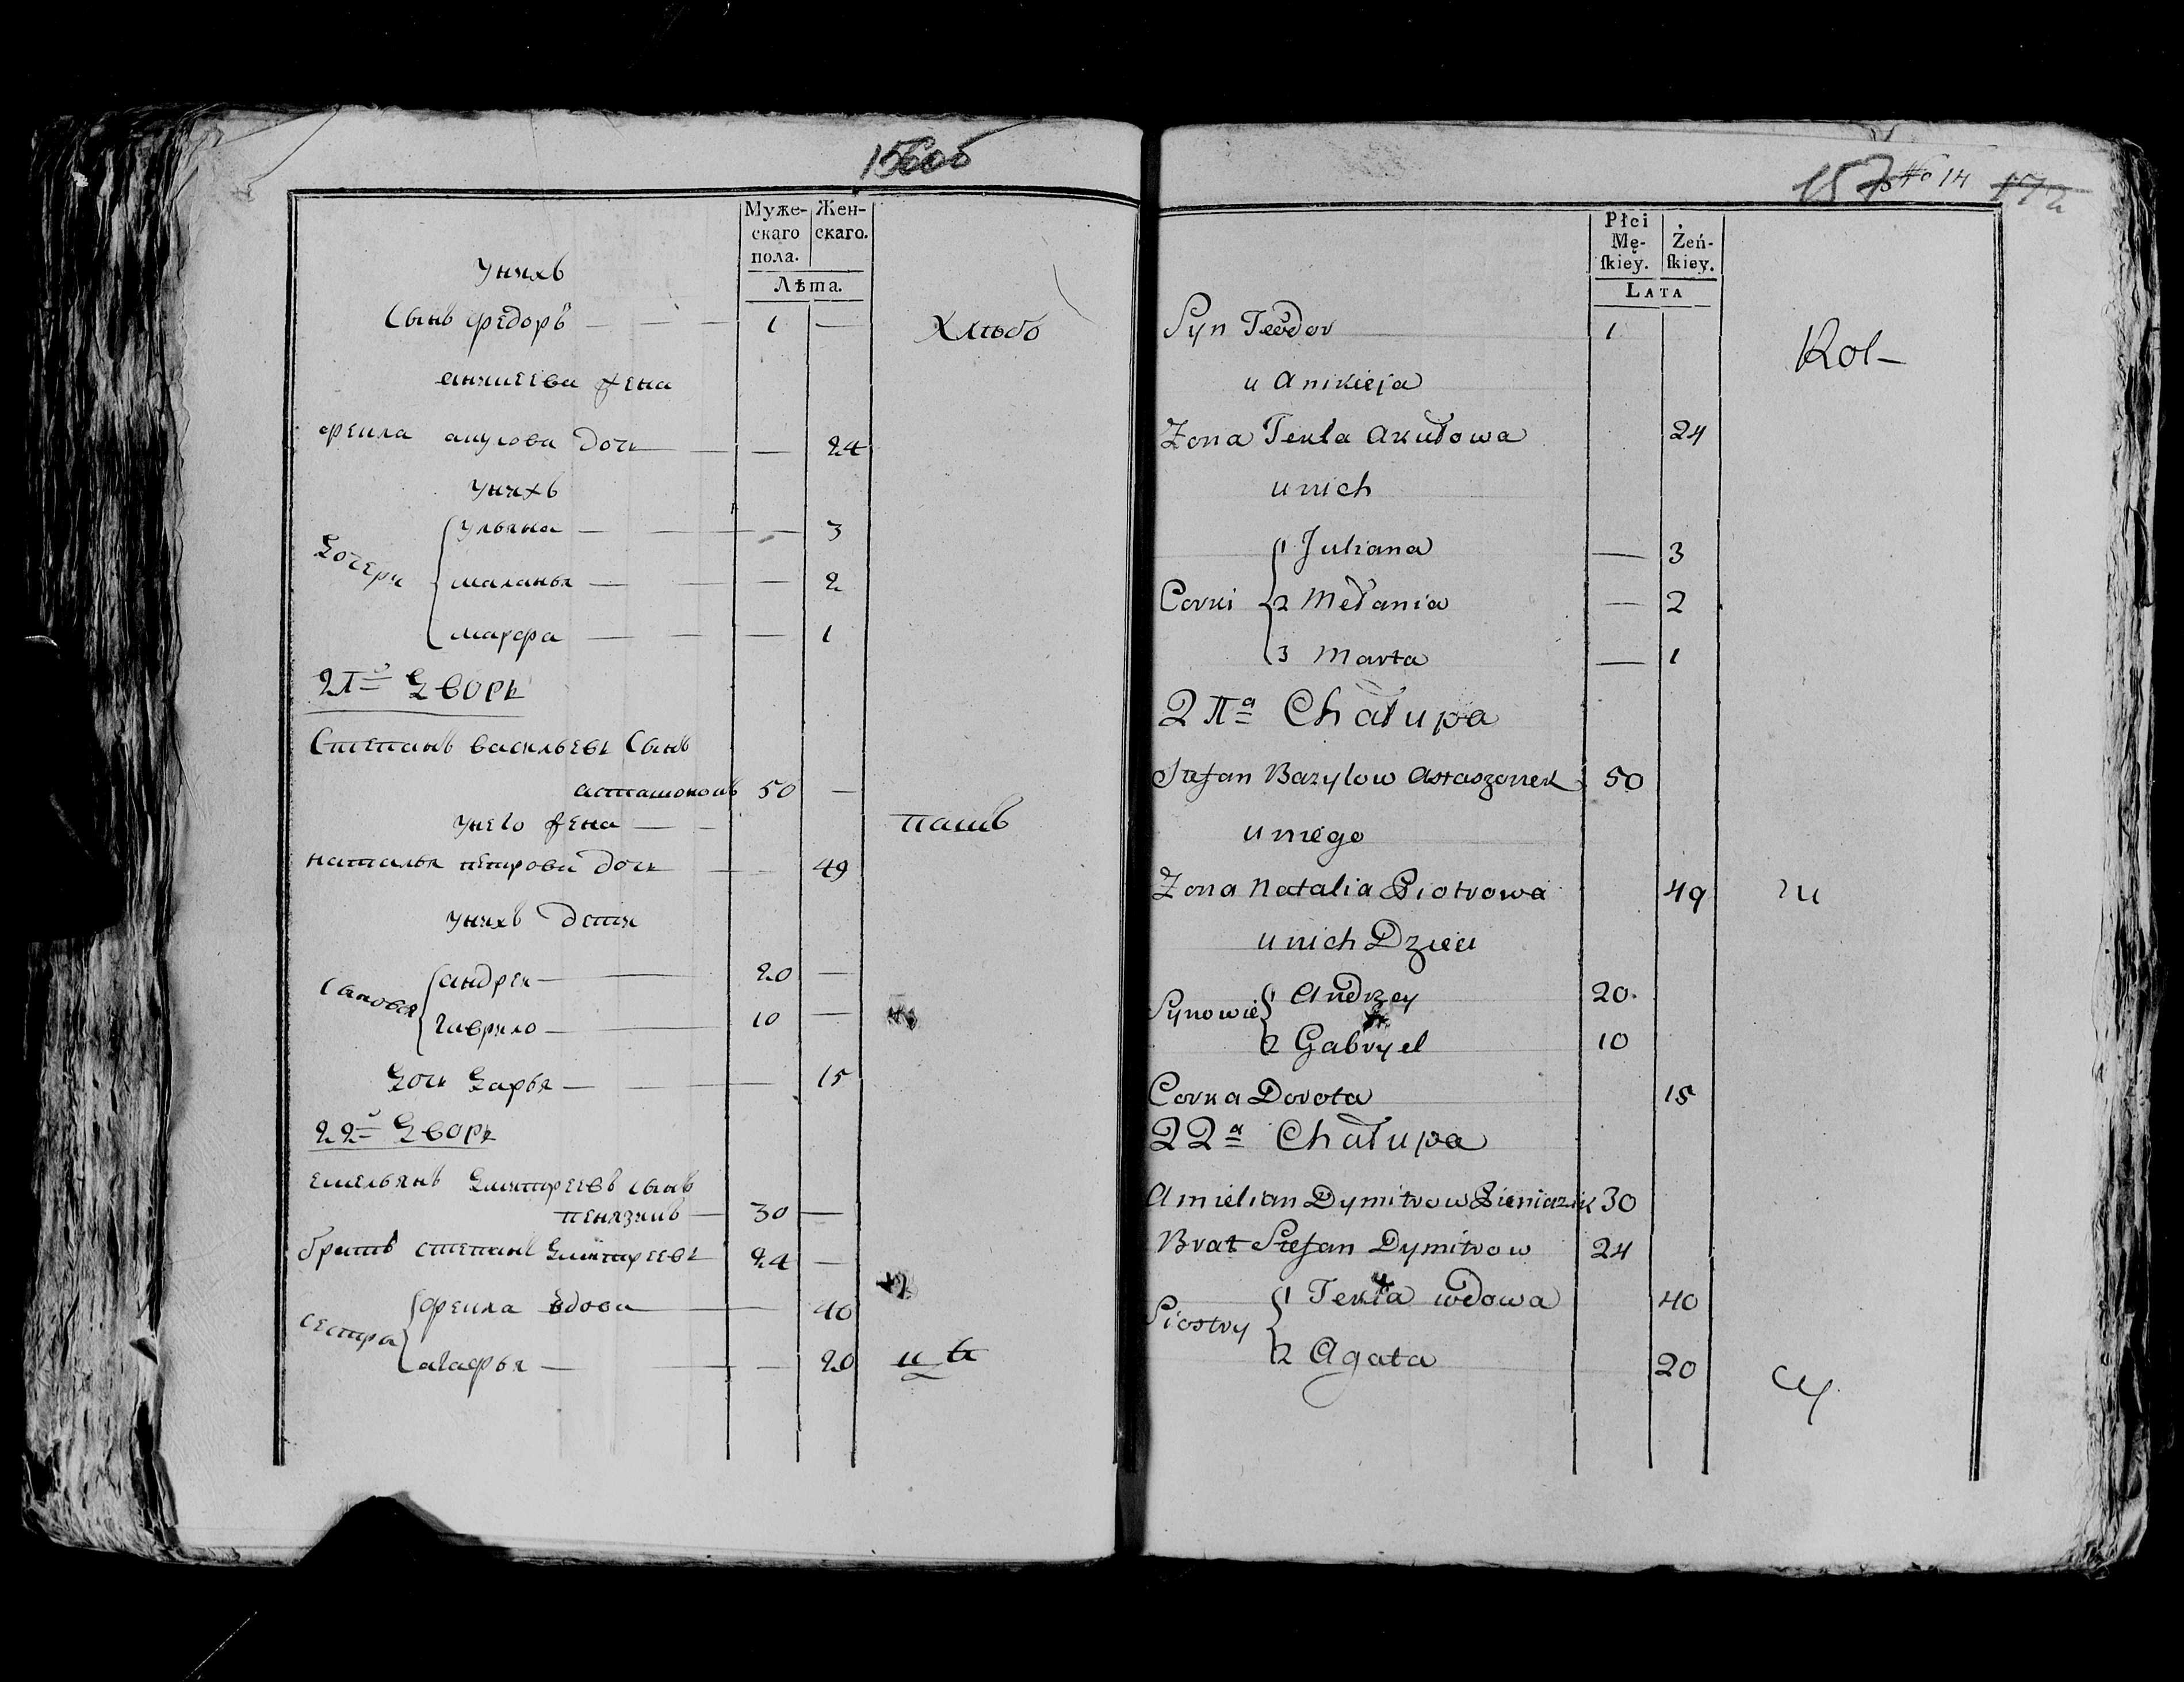 156об
Муже-
скаго
пола.
Жен-
скаго.
Лѣта.
Унихъ
Сынъ Федоръ — — — 1 — Хлѣбо
аникеева жена
фекла акулова дочь — — 24
унихъ
Дочери
ульяна — — — 3
маланья — — — 2
марфа — — — 1
21й Дворъ
Степанъ васильевъ Сынъ
асташонокъ 50 —
унего жена — — пашъ
наталья петрова дочь — — 49
унихъ дети
Сыновья
андрей — — 20 —
гаврило — 10 —
Дочь Дарья — — — 15
22й Дворъ
емельянъ Дмитреевъ сынъ
пенязикъ — 30 —
братъ степанъ Дмитреевъ 24 —
сестры
фекла вдова — — 40
агафья — — — 20
157 No 14
Płci
Mę-
skiéy.
Żeń-
skiey.
LATA
Syn Teodor 1 Rot-
u Anikieja
Zona Tekla Akułowa 24
u nich
Corki
1 Juliana — 3
2 Mełania — 2
3 Marta — 1
21a Chałupa
Stefan Bazylow Astaszonek 50
u niego
Zona Natalia Piotrowa 49 m
u nich Dzieci
Synowie
1 Andrzey 20.
2 Gabryel 10
Corka Dorota 15
22a Chałupa
Amielian Dymitrow Pieniazik 30
Brat Stefan Dymitrow 24
Siostry
1 Tekla wdowa 40
2 Agata 20 cy